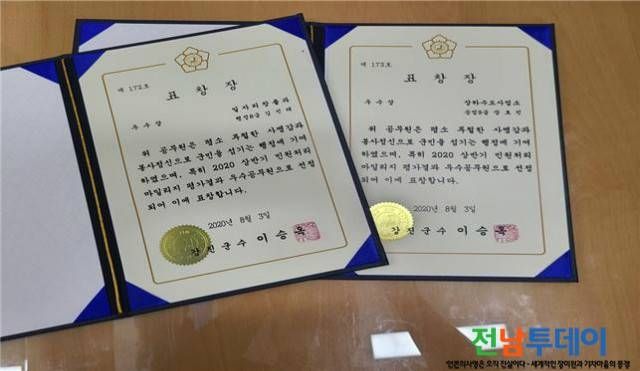 제 172호
표 창 장
우 수 상
일자리창출과
행정8급 김 민 태
위 공무원은 평소 투철한 사명감과
봉사정신으로 군민을 섬기는 행정에 기여
하였으며, 특히 2020 상반기 민원처리
마일리지 평가결과 우수공무원으로 선정
되어 이에 표창합니다.
2020년 8월 3일
강진군수 이 승 옥
제 173호
표 창 장
우 수 상
상하수도사업소
위 공무원은 평소 투철한 사명감과
봉사정신으로 군민을 섬기는 행정에 기여
하였으며, 특히 2020 상반기 민원처리
마일리지 평가결과 우수공무원으로 선정
되어 이에 표창합니다.
2020년 8월 3일
강진군수 이 승 옥
전남투데이
언론의사명은 오직 진실이다 - 세계적인 장미원과 기차마을의 풍경